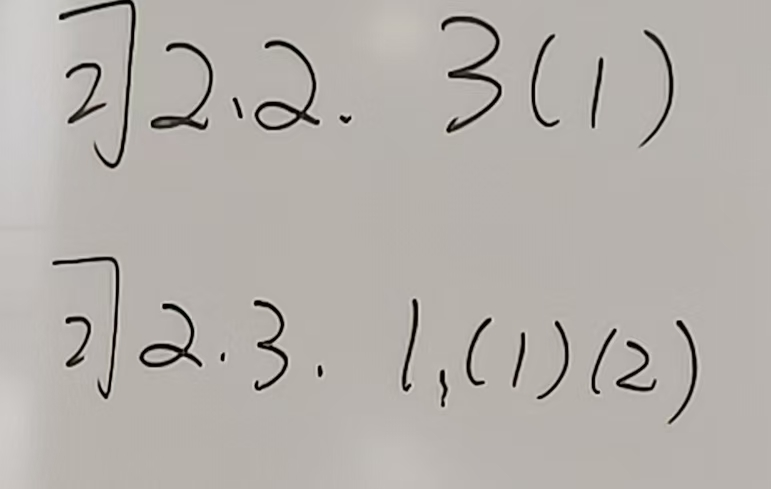 习2.2. 3(1)
习2.3. 1,(1)(2)